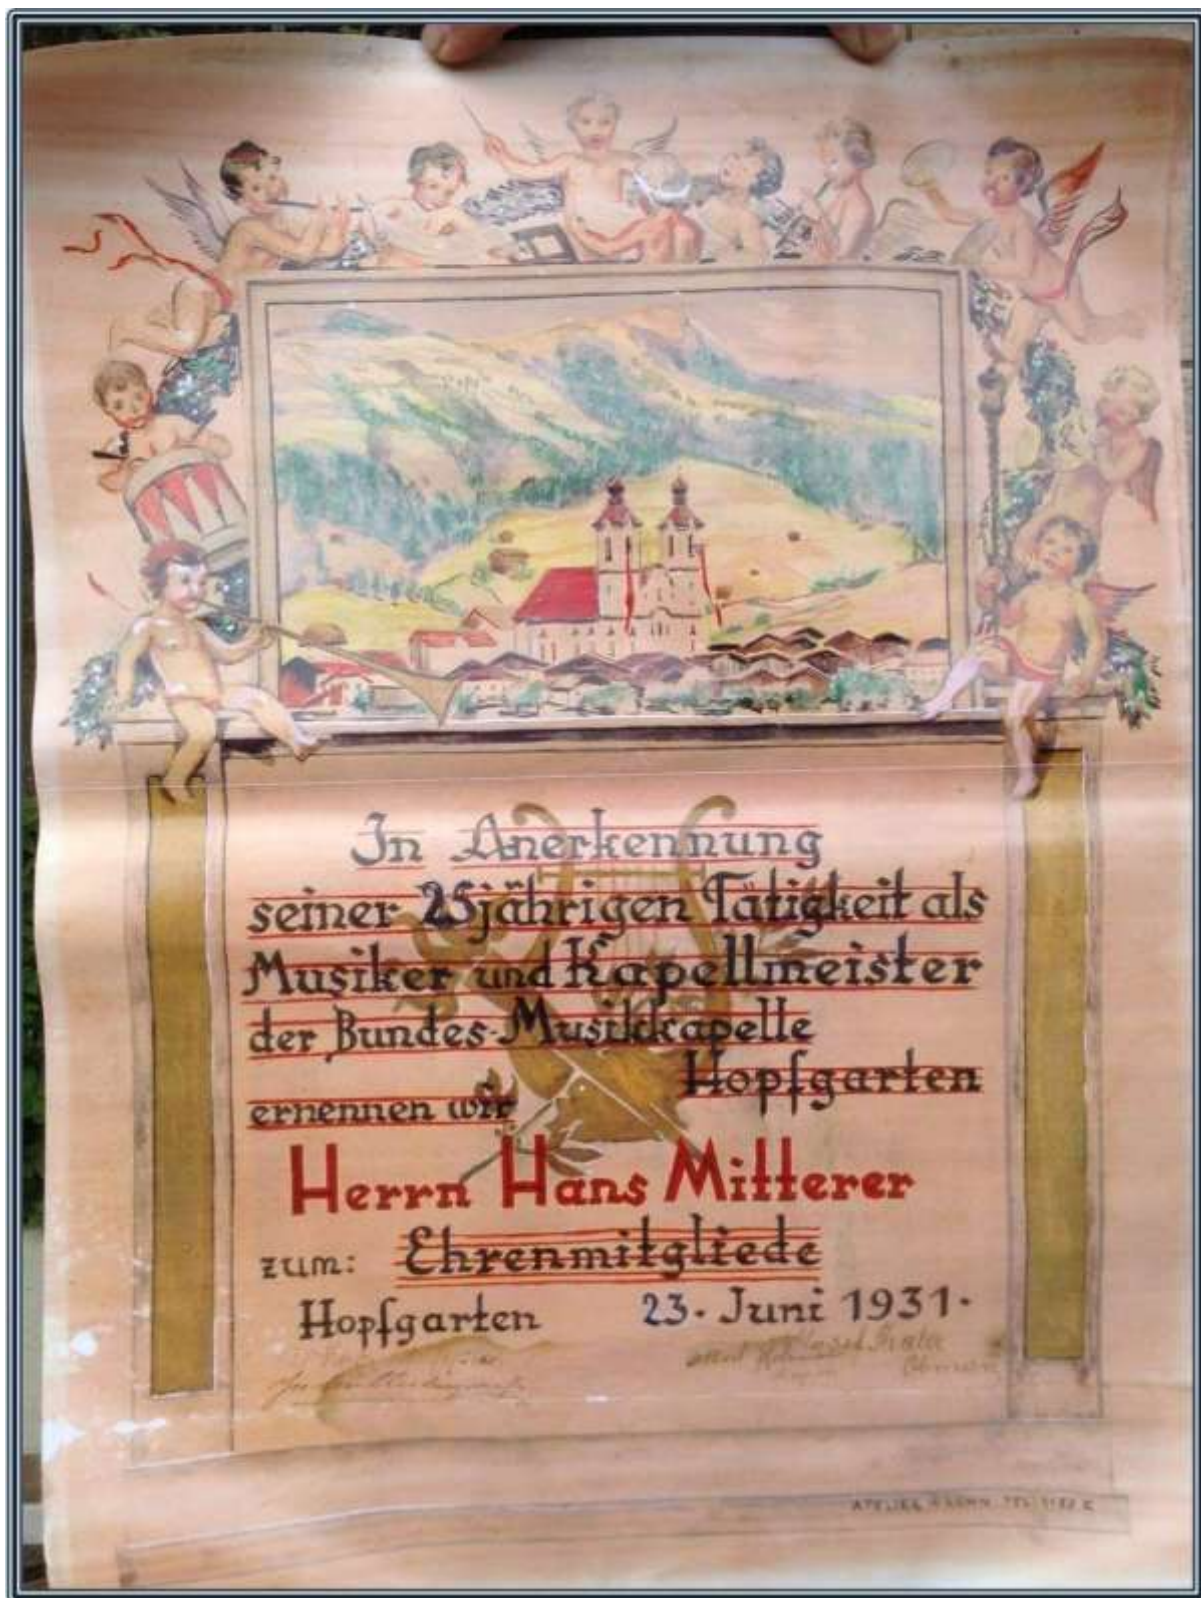 In Anerkennung
seiner 25jährigen Tätigkeit als
Musiker und Kapellmeister
der Bundes-Musikkapelle
Hopfgarten
ernennen wir
Herrn Hans Mitterer
zum: Ehrenmitgliede
Hopfgarten 23. Juni 1931.
ATELIER